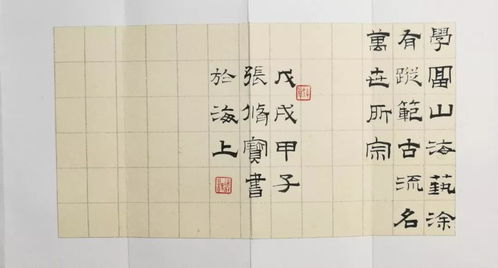 學富山海藝深
有蹤範古流名
萬世所宗
戊戌甲子
張脩寶書
於海上